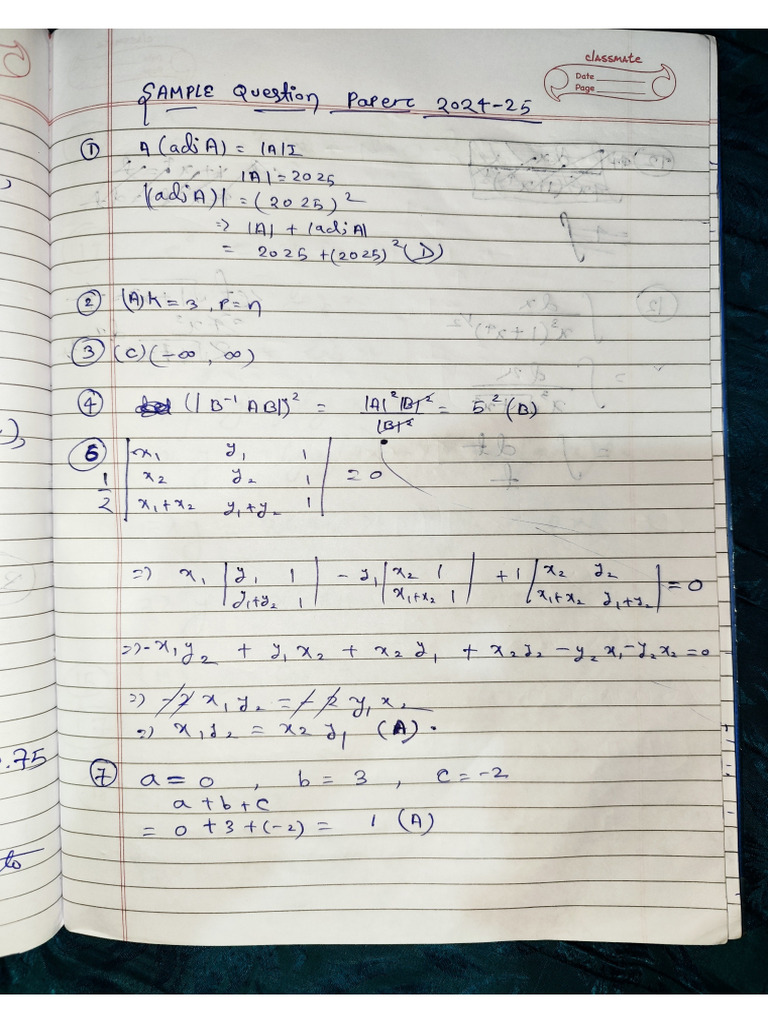 classmate
Date
Page
SAMPLE Question Paper 2024-25
① A(adj A) = |A|I
|A| = 2025
|(adj A)| = (2025)²
⇒ |A| + |adj A|
= 2025 + (2025)² (D)
② (A) K = 3, P = n
③ (C) (-∞, ∞)
④ (|B⁻¹ AB|)² = |A|²|B|²/|B|² = 5² (B)
⑤ 1/2 | x₁ y₁ 1 | = 0
| x₂ y₂ 1 |
| x₁+x₂ y₁+y₂ 1 |
⇒ x₁ | y₁ 1 | - y₁ | x₂ 1 | + 1 | x₂ y₂ | = 0
| y₁+y₂ 1 | | x₁+x₂ 1 | | x₁+x₂ y₁+y₂ |
⇒ -x₁y₂ + y₁x₂ + x₂y₁ + x₂y₂ - y₂x₁ - y₂x₂ = 0
⇒ -2 x₁y₂ = -2 y₁x₂
⇒ x₁y₂ = x₂y₁ (A).
⑦ a = 0, b = 3, c = -2
a + b + c
= 0 + 3 + (-2) = 1 (A)
.75
to